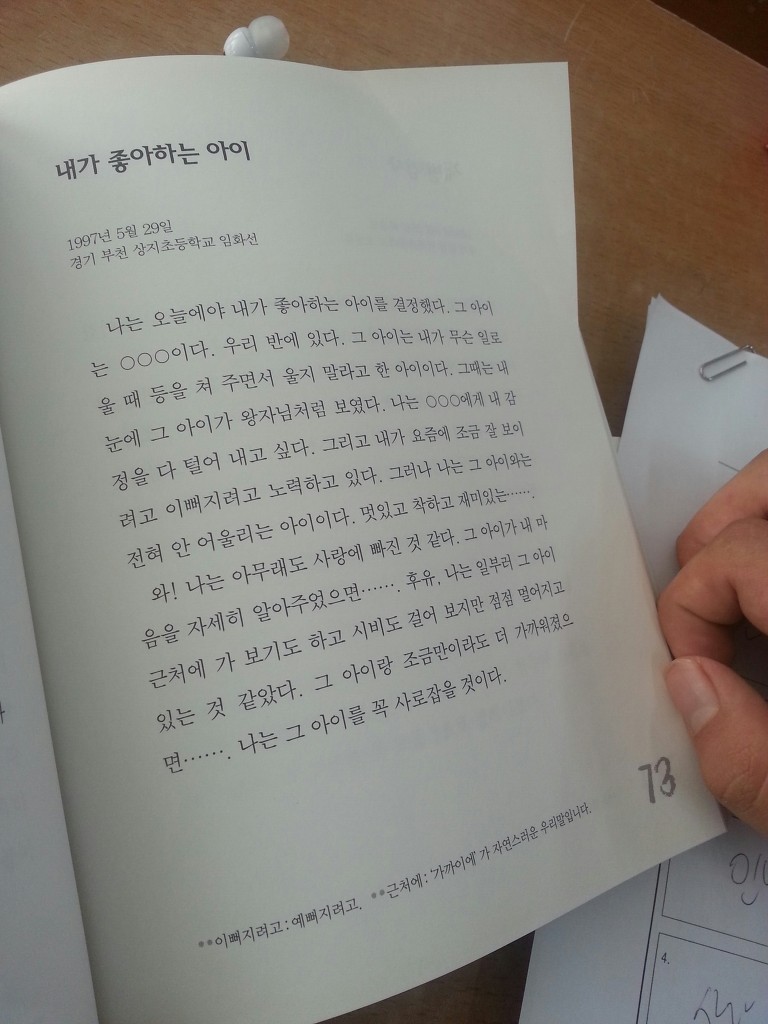 내가 좋아하는 아이
1997년 5월 29일
경기 부천 상지초등학교 임화선
나는 오늘에야 내가 좋아하는 아이를 결정했다. 그 아이
는 ○○○이다. 우리 반에 있다. 그 아이는 내가 무슨 일로
울 때 등을 쳐 주면서 울지 말라고 한 아이이다. 그때는 내
눈에 그 아이가 왕자님처럼 보였다. 나는 ○○○에게 내 감
정을 다 털어 내고 싶다. 그리고 내가 요즘에 조금 잘 보이
려고 이뻐지려고 노력하고 있다. 그러나 나는 그 아이와는
전혀 안 어울리는 아이이다. 멋있고 착하고 재미있는…….
와! 나는 아무래도 사랑에 빠진 것 같다. 그 아이가 내 마
음을 자세히 알아주었으면……. 후유, 나는 일부러 그 아이
근처에 가 보기도 하고 시비도 걸어 보지만 점점 멀어지고
있는 것 같았다. 그 아이랑 조금만이라도 더 가까워졌으
면……. 나는 그 아이를 꼭 사로잡을 것이다.
73
**이뻐지려고:예뻐지려고. **근처에:'가까이에'가 자연스러운 우리말입니다.
4.